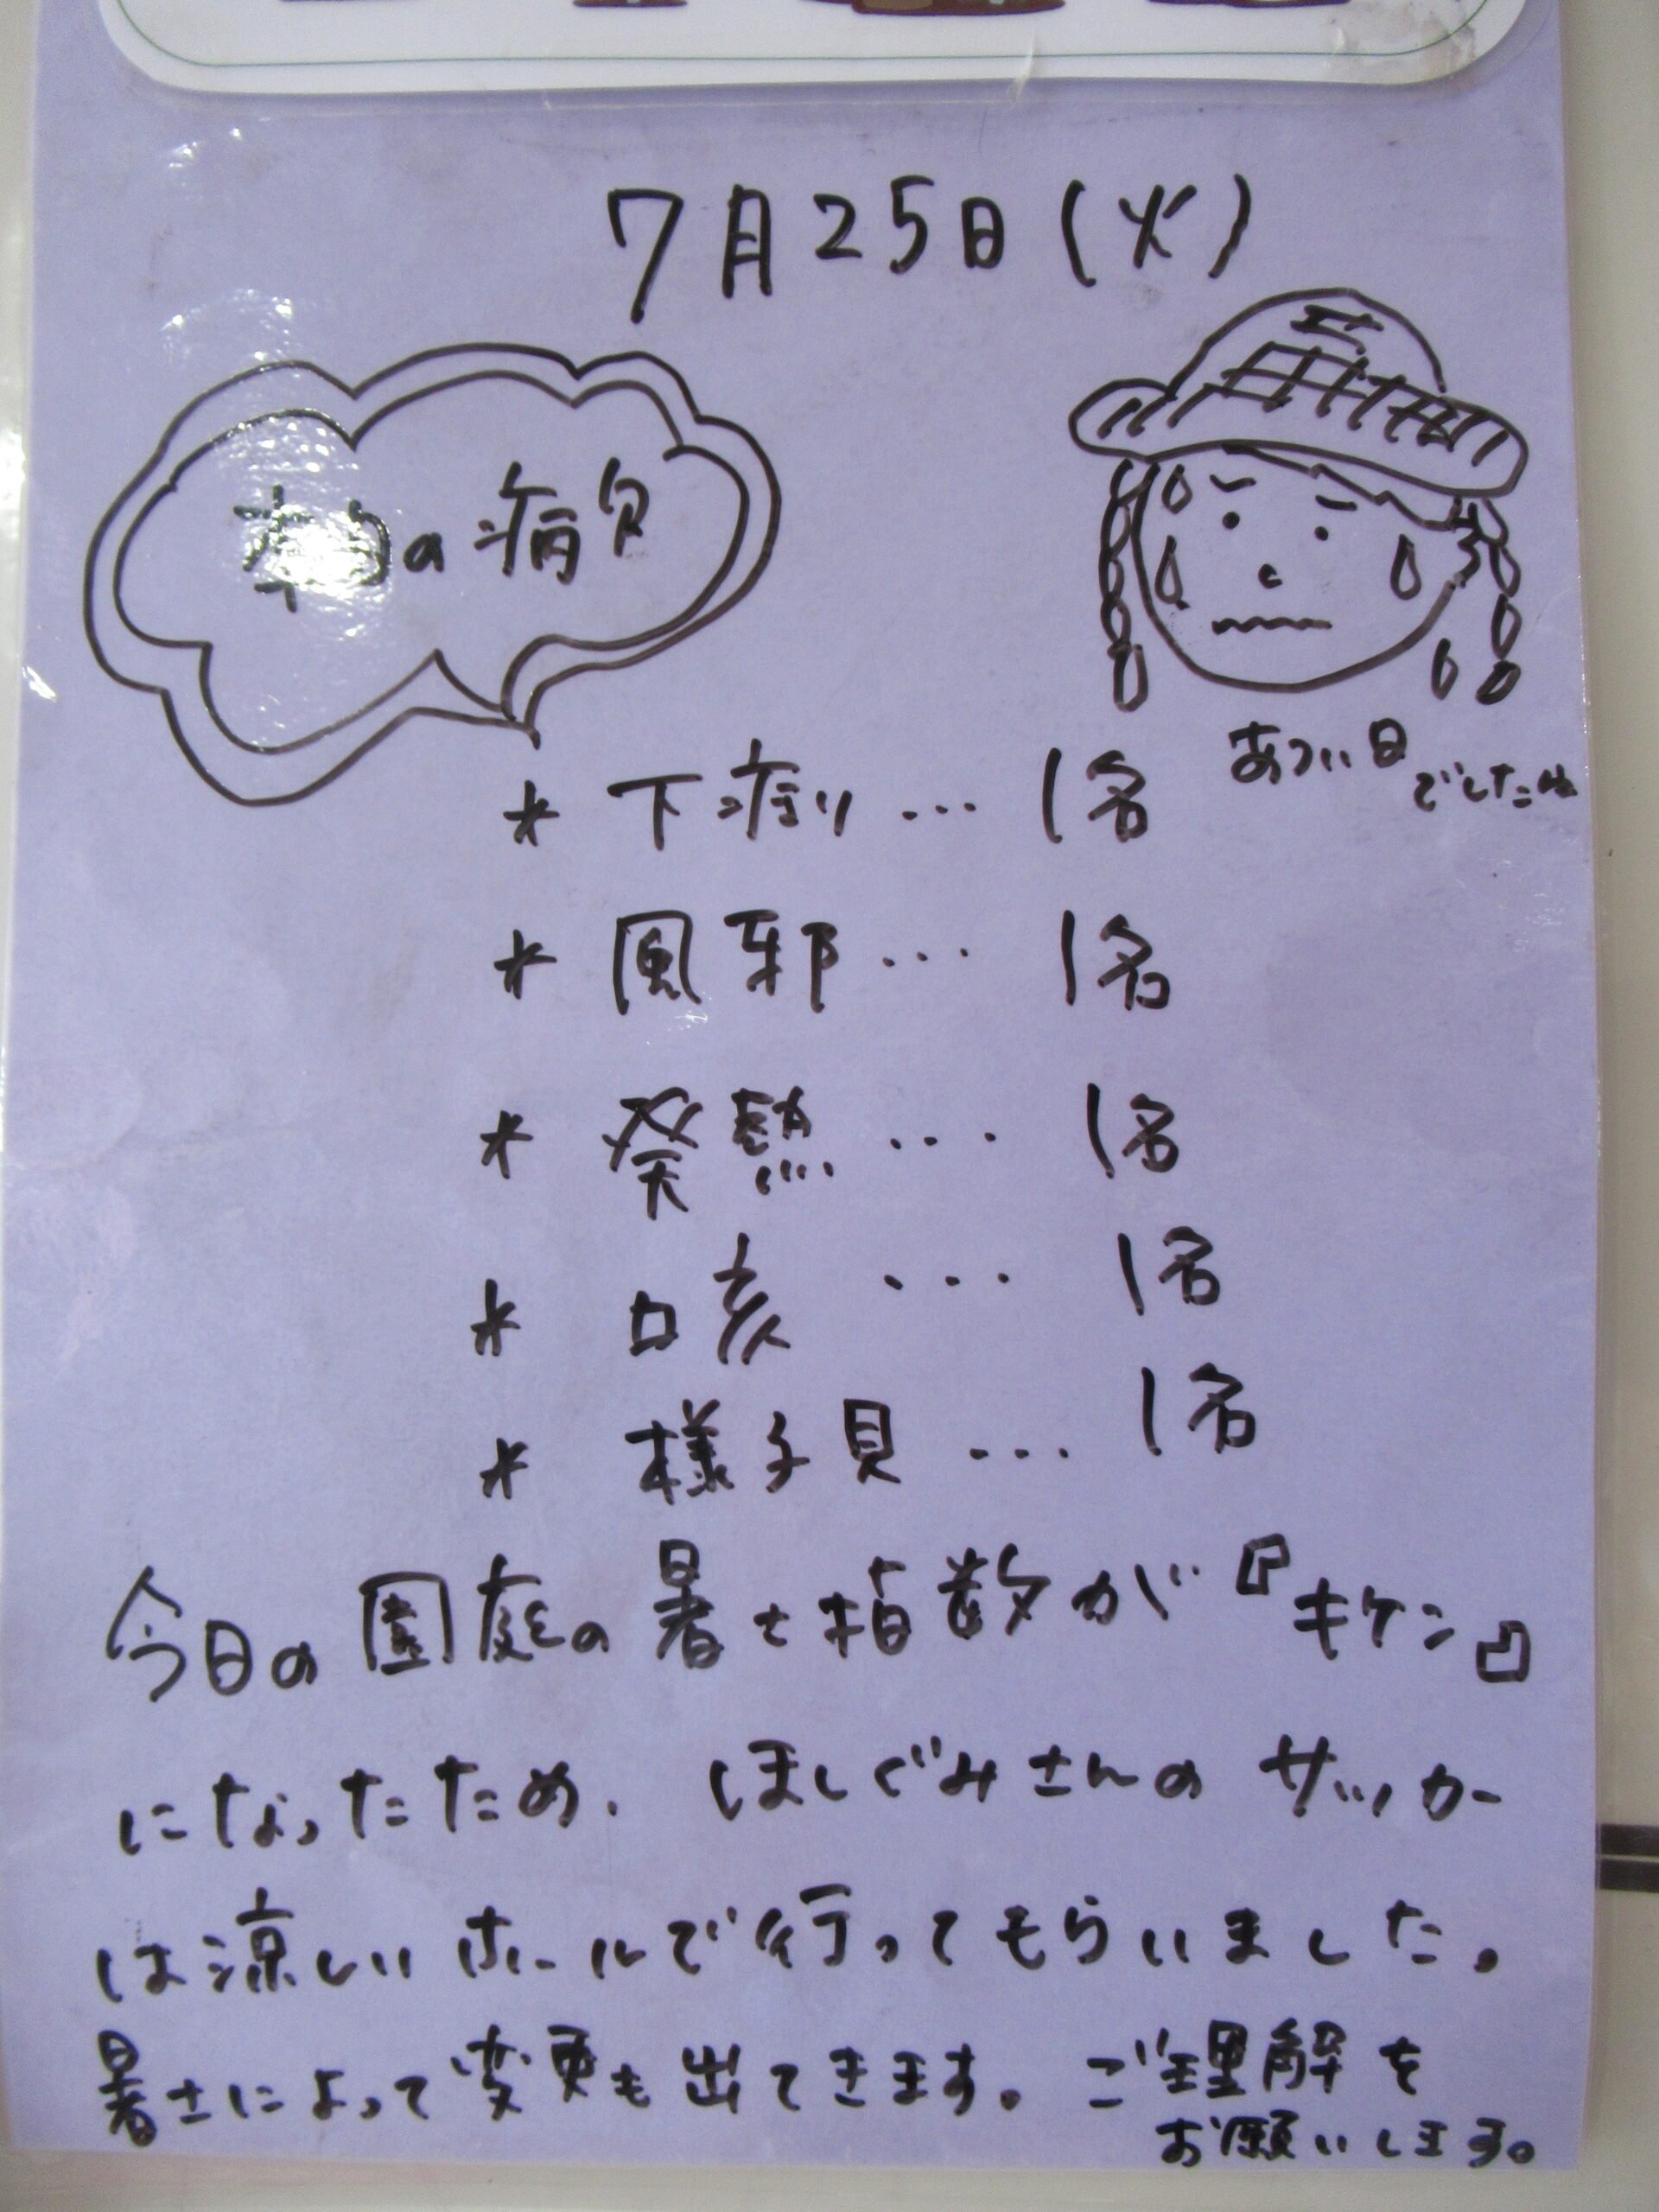 7月25日(火)
本日の病欠
あつい日
でしたね
* 下痢 … 1名
* 風邪 … 1名
* 発熱 … 1名
* 咳 … 1名
* 様子見 … 1名
今日の園庭の暑さ指数が『キケン』
になったため、ほしぐみさんのサッカー
は涼しいホールで行ってもらいました。
暑さによって変更も出てきます。ご理解を
お願いします。